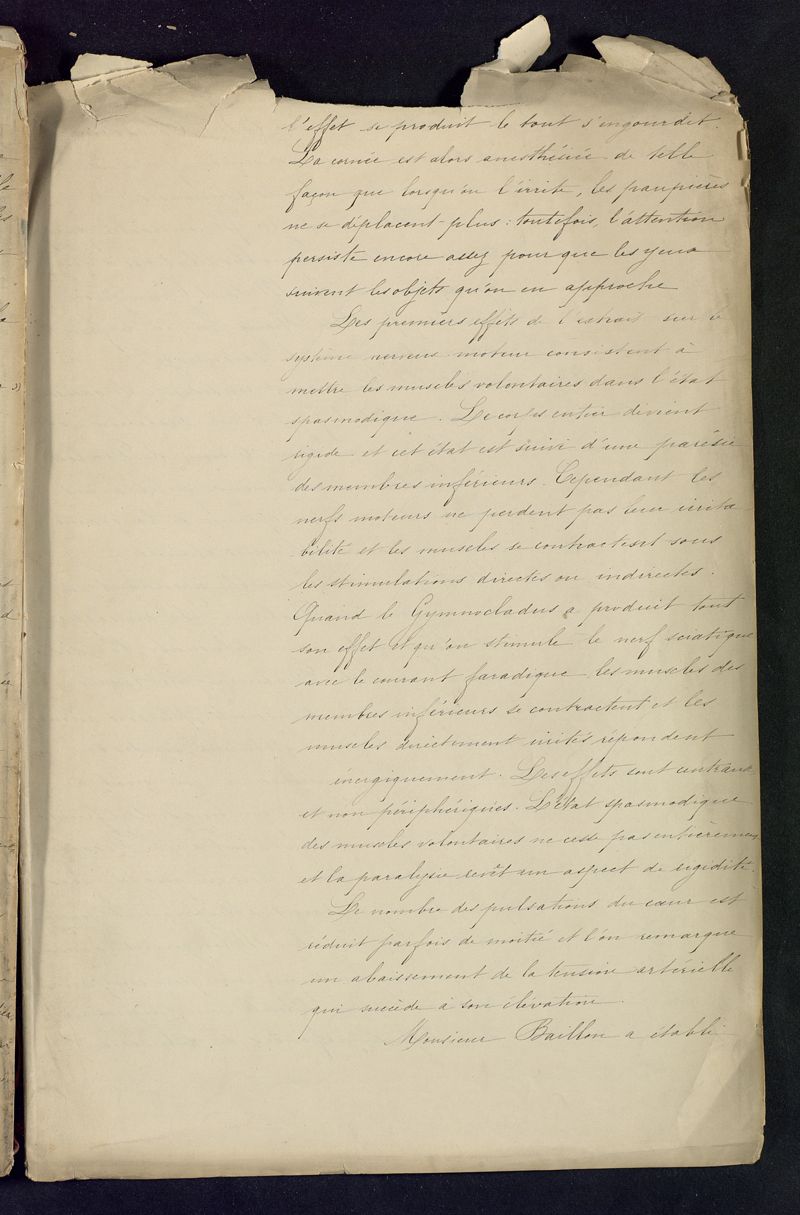 l'effet se produit le tout s'engourdit.
La cornée est alors anesthésiée de telle
façon que lorsqu'on l'irrite, les paupières
ne se déplacent plus : toutefois, l'attention
persiste encore assez pour que les yeux
suivent les objets qu'on en approche
Les premiers effets de l'extrait sur le
système nerveux moteur consistent à
mettre les muscles volontaires dans l'état
spasmodique. Le corps entier devient
rigide et cet état est suivi d'une parésie
des membres inférieurs. Cependant les
nerfs moteurs ne perdent pas leur irrita
bilité et les muscles se contractent sous
les stimulations directes ou indirectes.
Quand le Gymnocladus a produit tout
son effet et qu'on stimule le nerf sciatique
avec le courant faradique les muscles des
membres inférieurs se contractent et les
muscles directement irrités répondent
énergiquement. Les effets sont centraux
et non périphériques. L'état spasmodique
des muscles volontaires ne cesse pas entièrement
et la paralysie revêt un aspect de rigidité.
Le nombre des pulsations du cœur est
réduit parfois de moitié et l'on remarque
un abaissement de la tension artérielle
qui succède à son élévation.
Monsieur Baillon a établi